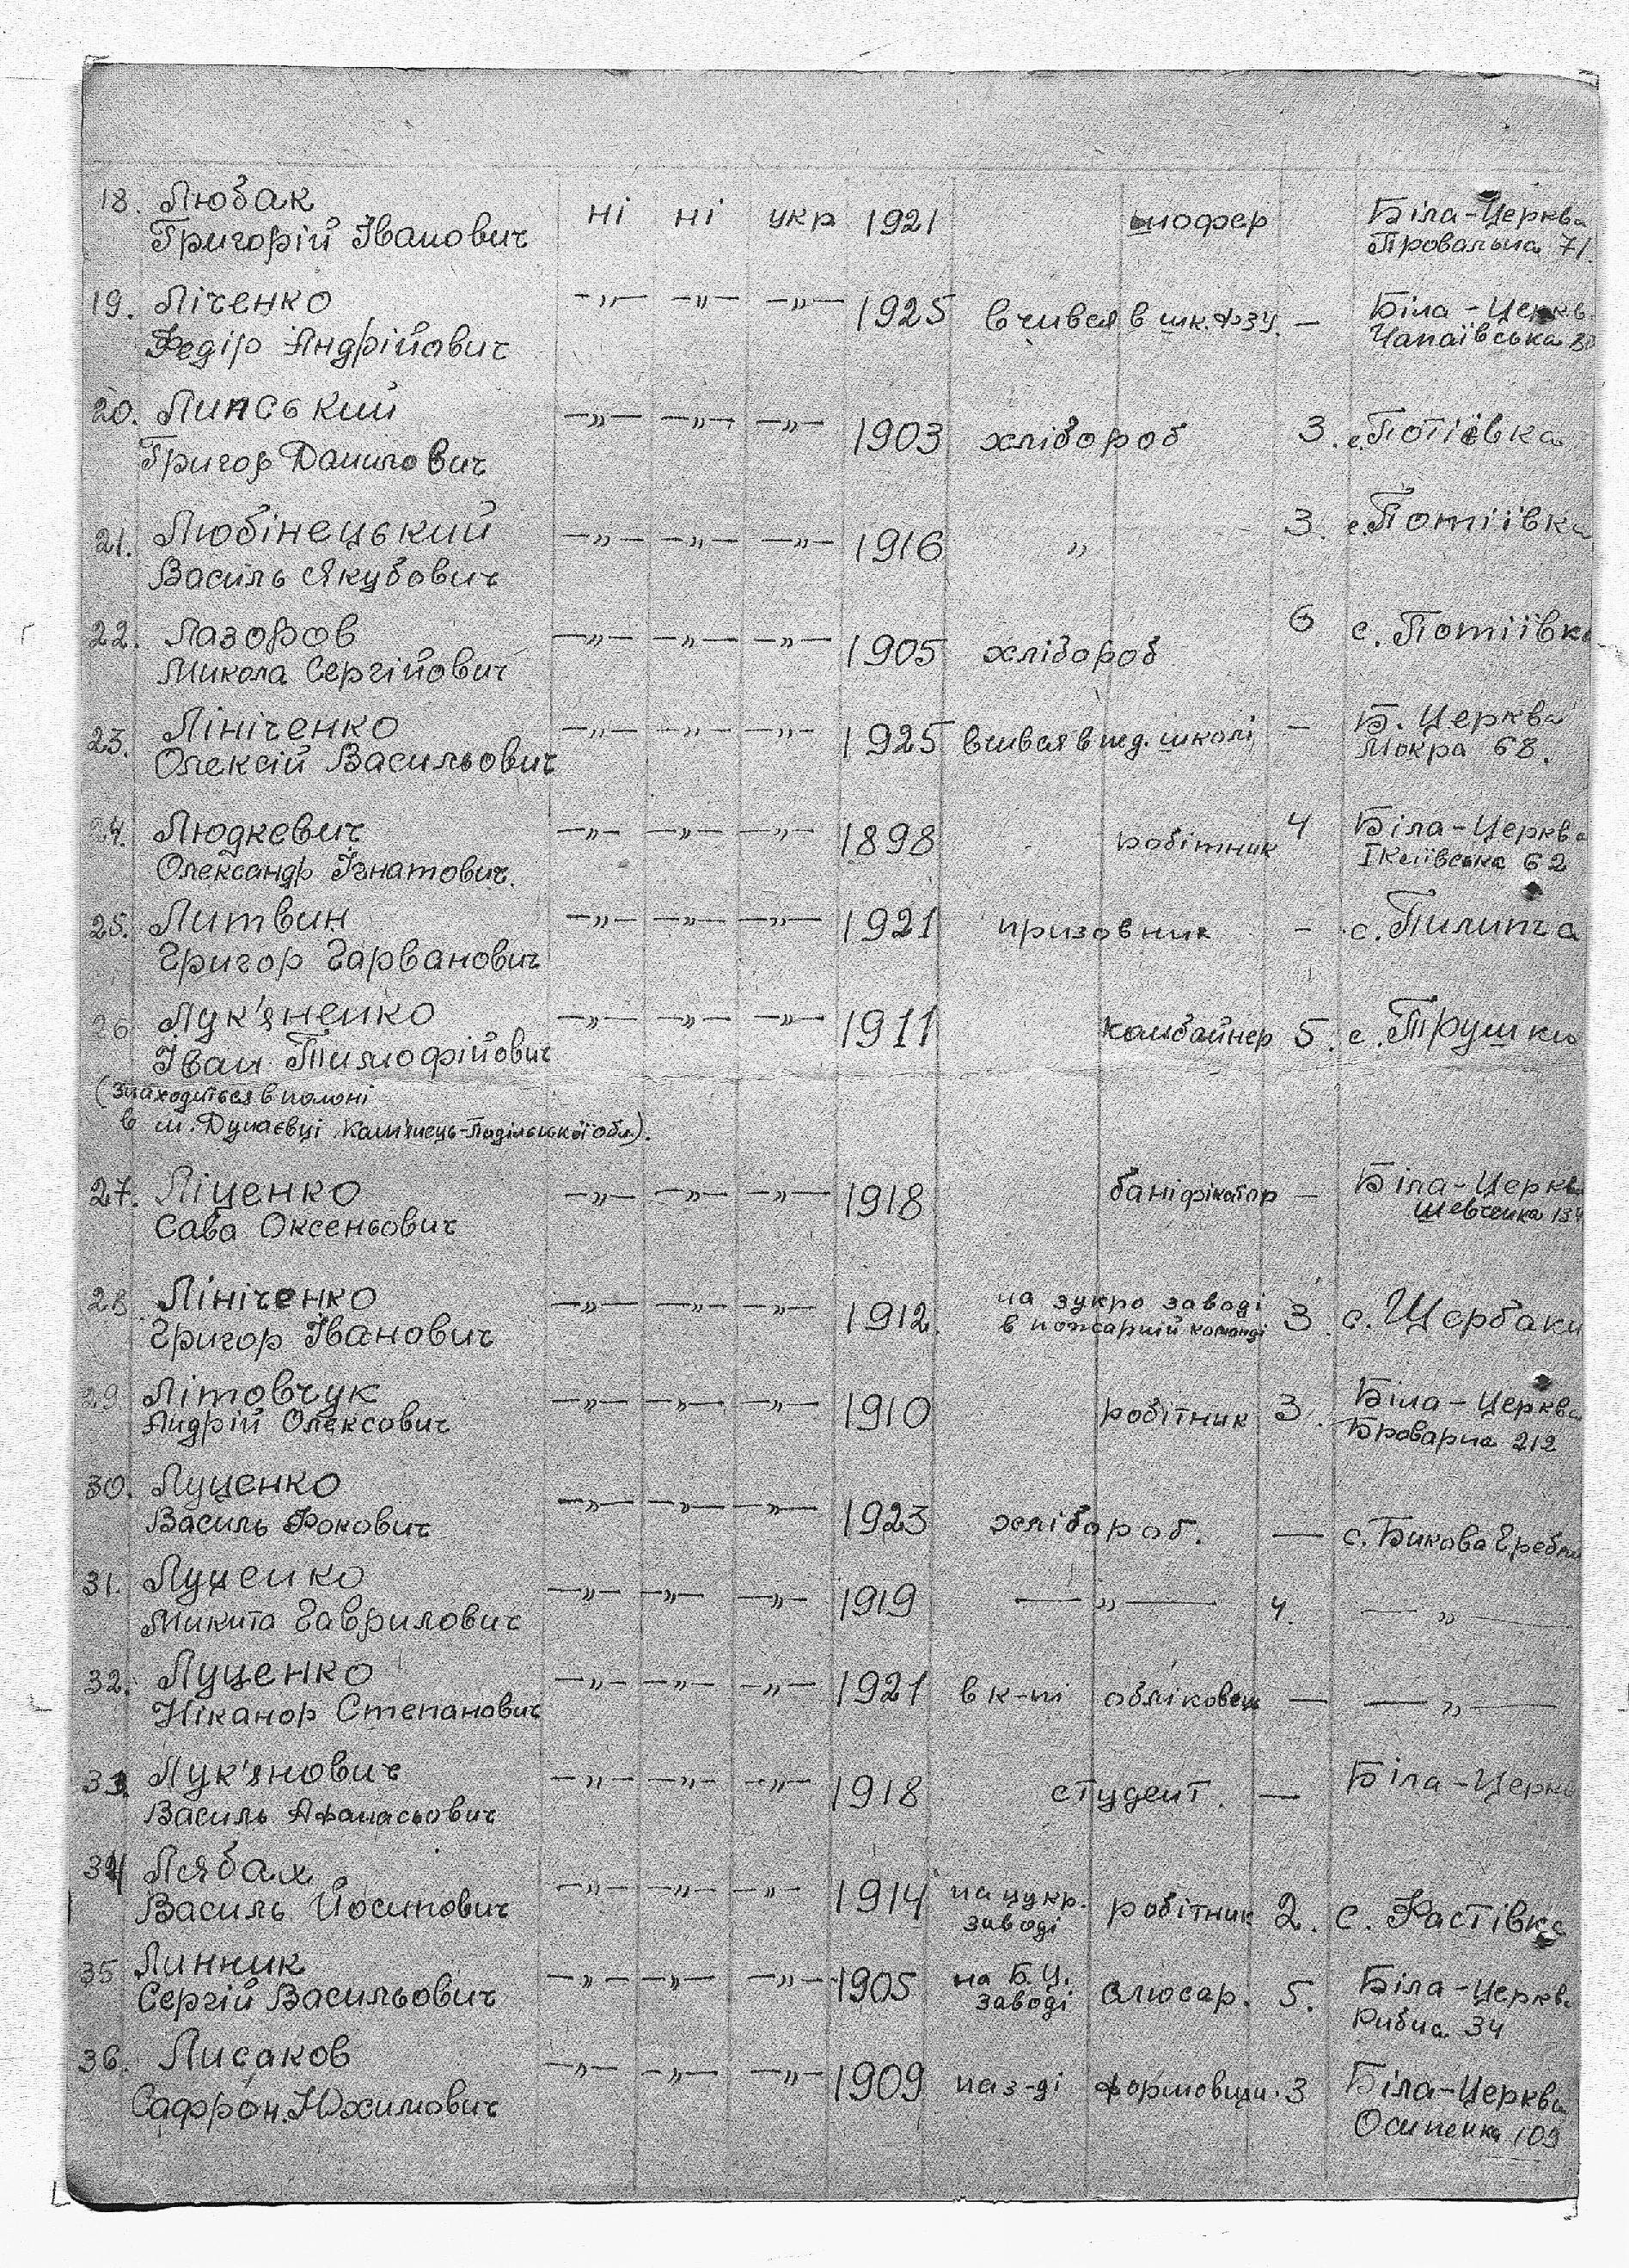 18. Любак ні ні укр 1921 шофер Біла-Церква
Григорій Іванович Провальна 71.
19.Ліченко —„— —„— —„— 1925 вчився в шк. ФЗУ. — Біла-Церкв.
Федір Андрійович Чапаївська
20. Липський —„— —„— —„— 1903 хлібороб 3. с. Потіївка
Григор Данилович
21. Любінецький —„— —„— —„— 1916 „ 3. с. Потіївка
Василь Якубович
22. Лазоров —„— —„— —„— 1905 хлібороб 6 с. Потіївка
Микола Сергійович
23. Лініченко —„— —„— —„— 1925 вчився в пед. школі — Б. Церква
Олексій Васильович Мокра 68.
24. Людкевич —„— —„— —„— 1898 робітник 4 Біла-Церква
Олександр Ігнатович. 62
25. Литвин —„— —„— —„— 1921 призовник — с. Пилипча
Григор Гарванович
26 Лук'яненко —„— —„— —„— 1911 комбайнер 5. с. Трушки
Іван Тимофійович
(Знаходиться в полоні
в м. Дунаєвці Кам'янець-Подільської обл.).
27. Ліщенко —„— —„— —„— 1918 боніфікатор — Біла-Церкв
Сава Оксеньович Шевченка
28 Лініченко —„— —„— —„— 1912. на зукро заводі 3. с. Щербаки
Григор Іванович в пожарній команді
29 Літовчук —„— —„— —„— 1910 робітник 3. Біла-Церква
Андрій Олексович Броварна 212
30. Луценко —„— —„— —„— 1923 хлібороб. — с. Бикова Гребля
Василь Фокович
31. Луценко —„— —„— —„— 1919 —„— 4. —„—
Микита Гаврилович
32. Луценко —„— —„— —„— 1921 в к-пі обліковець — —„—
Ніканор Степанович
33. Лук'янович —„— —„— —„— 1918 студент. — Біла-Церкв
Василь Афанасьович
34 Лябах —„— —„— —„— 1914 на цукр. робітник 2. с. Фастівка
Василь Йосипович заводі
35 Линник —„— —„— —„— 1905 на Б.Ц. слюсар. 5. Біла-Церкв.
Сергій Васильович заводі Рибна 34
36. Лисаков —„— —„— —„— 1909 на з-ді формовщи. 3 Біла-Церква
Сафрон Юхимович Осипенка 109